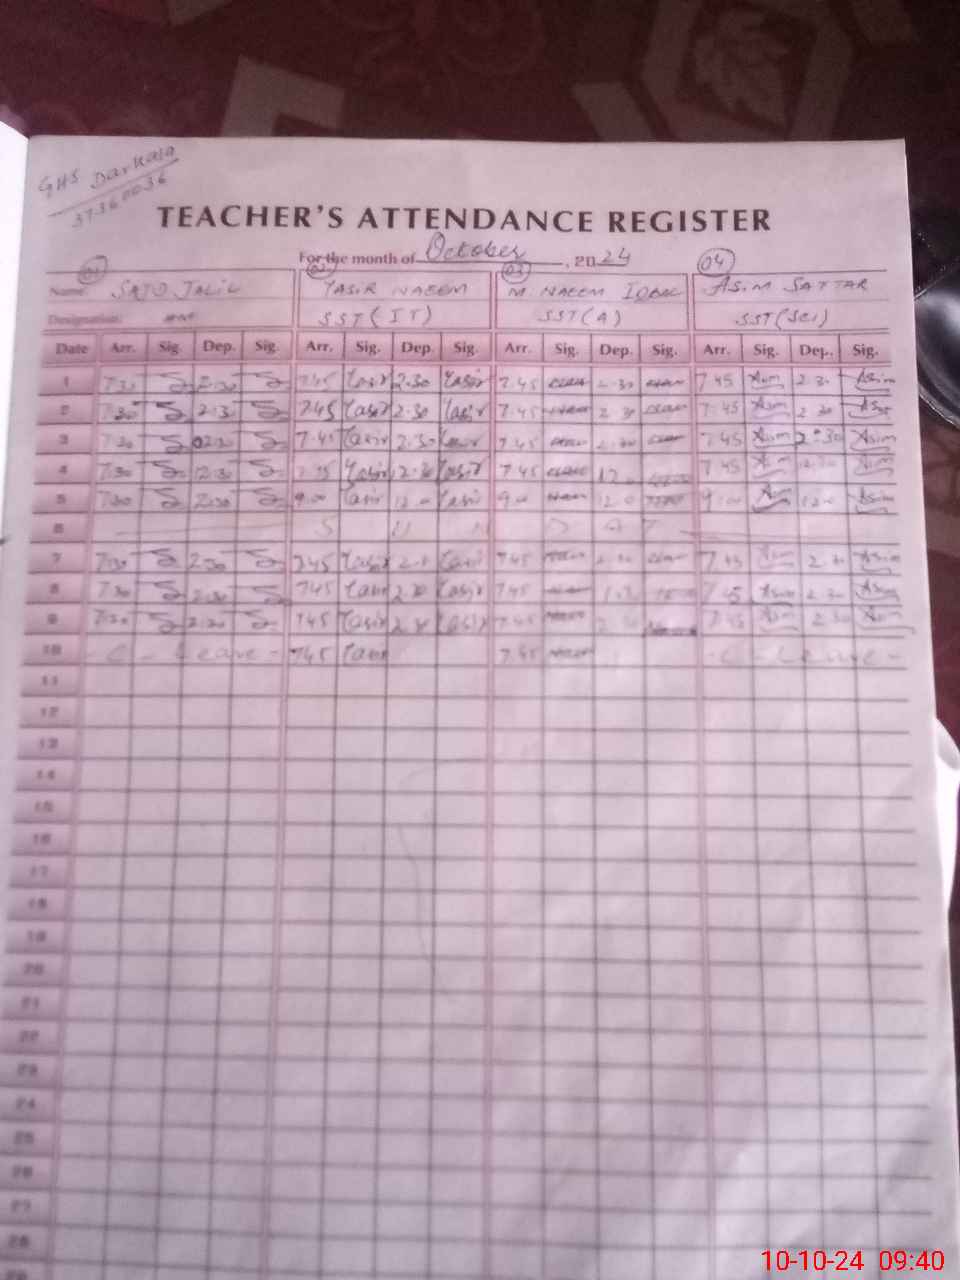 GHS Darkala
37360036
TEACHER'S ATTENDANCE REGISTER
For the month of October, 2024
01 02 03 04
Name SAJD JALIL YASIR NAEEM M. NAEEM IQBAL ASIM SATTAR
Designation: HM SST(IT) SST(A) SST(SCI)
Date Arr. Sig. Dep. Sig. Arr. Sig. Dep. Sig. Arr. Sig. Dep. Sig. Arr. Sig. Dep. Sig.
1 7.30 2.30 7.45 Yasir 2.30 Yasir 7.45 2.30 7.45 Asim 2.30 Asim
2 7.30 2.30 7.45 Yasir 2.30 Yasir 7.45 2.30 7.45 Asim 2.30 Asim
3 7.30 2.30 7.45 Yasir 2.30 Yasir 7.45 2.30 7.45 Asim 2.30 Asim
4 7.30 12.30 7.45 Yasir Yasir 7.45 12 7.45 Asim Asim
5 7.30 2.30 9.00 Yasir 12.0 Yasir 9.0 12.0 9.00 Asim 12.0 Asim
6 S U N D A Y
7 7.30 2.30 7.45 Yasir Yasir 7.45 7.45 Asim 2.30 Asim
8 7.30 2.30 7.45 Yasir 2.30 Yasir 7.45 7.45 Asim 2.30 Asim
9 7.30 2.30 7.45 Yasir 2.30 Yasir 7.45 7.45 Asim 2.30 Asim
10 - C - Leave - 7.45 Yasir 7.45 - C - Leave -
11
12
13
14
15
16
17
18
19
20
21
22
23
24
25
26
27
28
29
10-10-24 09:40